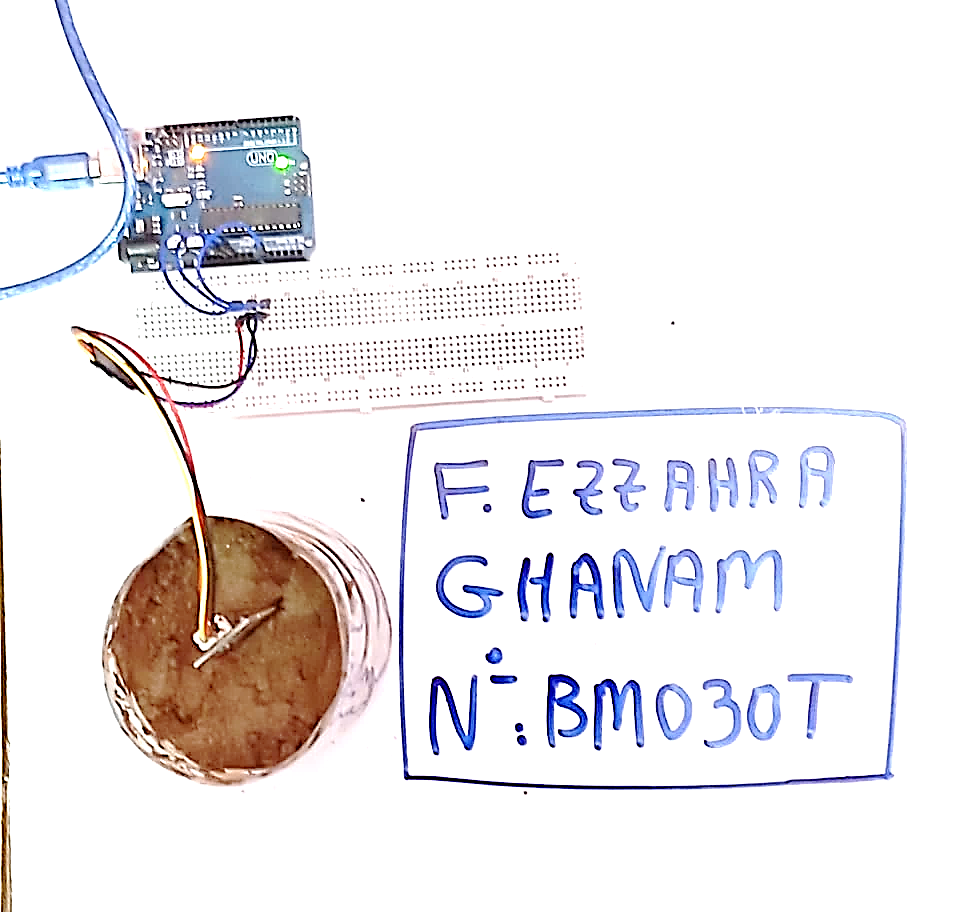 UNO
F. EZZAHRA
GHANAM
N°: BM030T